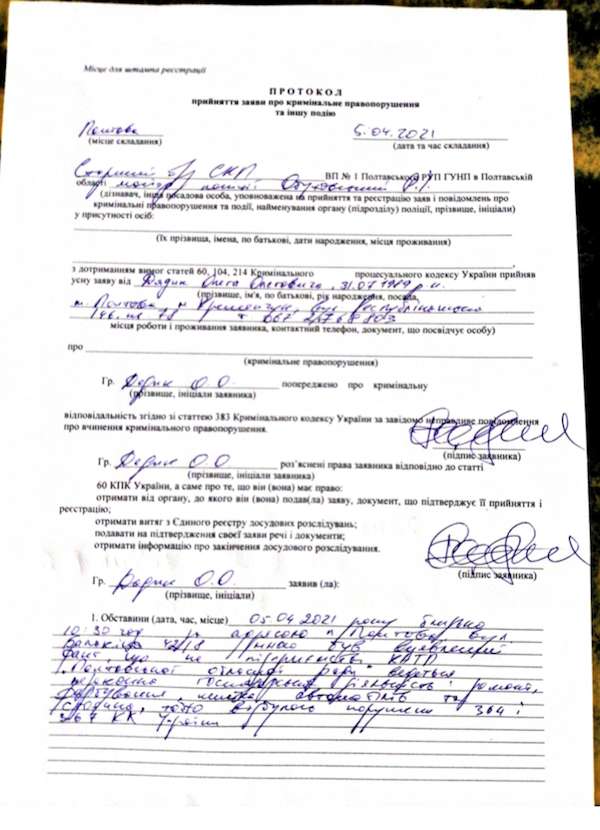 Місце для штампа реєстрації
П Р О Т О К О Л
прийняття заяви про кримінальне правопорушення
та іншу подію
Полтава 5.04.2021
(місце складання) (дата та час складання)
Старший о/у СКП ВП № 1 Полтавського РУП ГУНП в Полтавській
області майор поліції
(дізнавач, інша посадова особа, уповноважена на прийняття та реєстрацію заяв і повідомлень про
кримінальні правопорушення та події, найменування органу (підрозділу) поліції, прізвище, ініціали)
у присутності осіб:
(їх прізвища, імена, по батькові, дати народження, місця проживання)
з дотриманням вимог статей 60, 104, 214 Кримінального процесуального кодексу України прийняв
усну заяву від Олега Олеговича, 31.07.1989 р.н.
(прізвище, ім'я, по батькові, рік народження, посада,
м. Полтава, м. Кременчук, вул.
місця роботи і проживання заявника, контактний телефон, документ, що посвідчує особу)
про
(кримінальне правопорушення)
Гр. О.О. попереджено про кримінальну
(прізвище, ініціали заявника)
відповідальність згідно зі статтею 383 Кримінального кодексу України за завідомо неправдиве повідомлення
про вчинення кримінального правопорушення.
(підпис заявника)
Гр. О.О роз'яснені права заявника відповідно до статті
(прізвище, ініціали заявника)
60 КПК України, а саме про те, що він (вона) має право:
отримати від органу, до якого він (вона) подав(ла) заяву, документ, що підтверджує її прийняття і
реєстрацію;
отримати витяг з Єдиного реєстру досудових розслідувань;
подавати на підтвердження своєї заяви речі і документи;
отримати інформацію про закінчення досудового розслідування.
(підпис заявника)
Гр. О.О. заявив (ла):
(прізвище, ініціали)
1. Обставини (дата, час, місце) 05.04.2021 року близько
10:30 год за адресою м. Полтава вул.
42/18 був виявлений
факт, що на підприємстві
Полтавської обласної ради ведеться
господарська діяльність: ремонт,
фарбування, мийка автомобілів та
тобто порушено 364 і
367 КК України